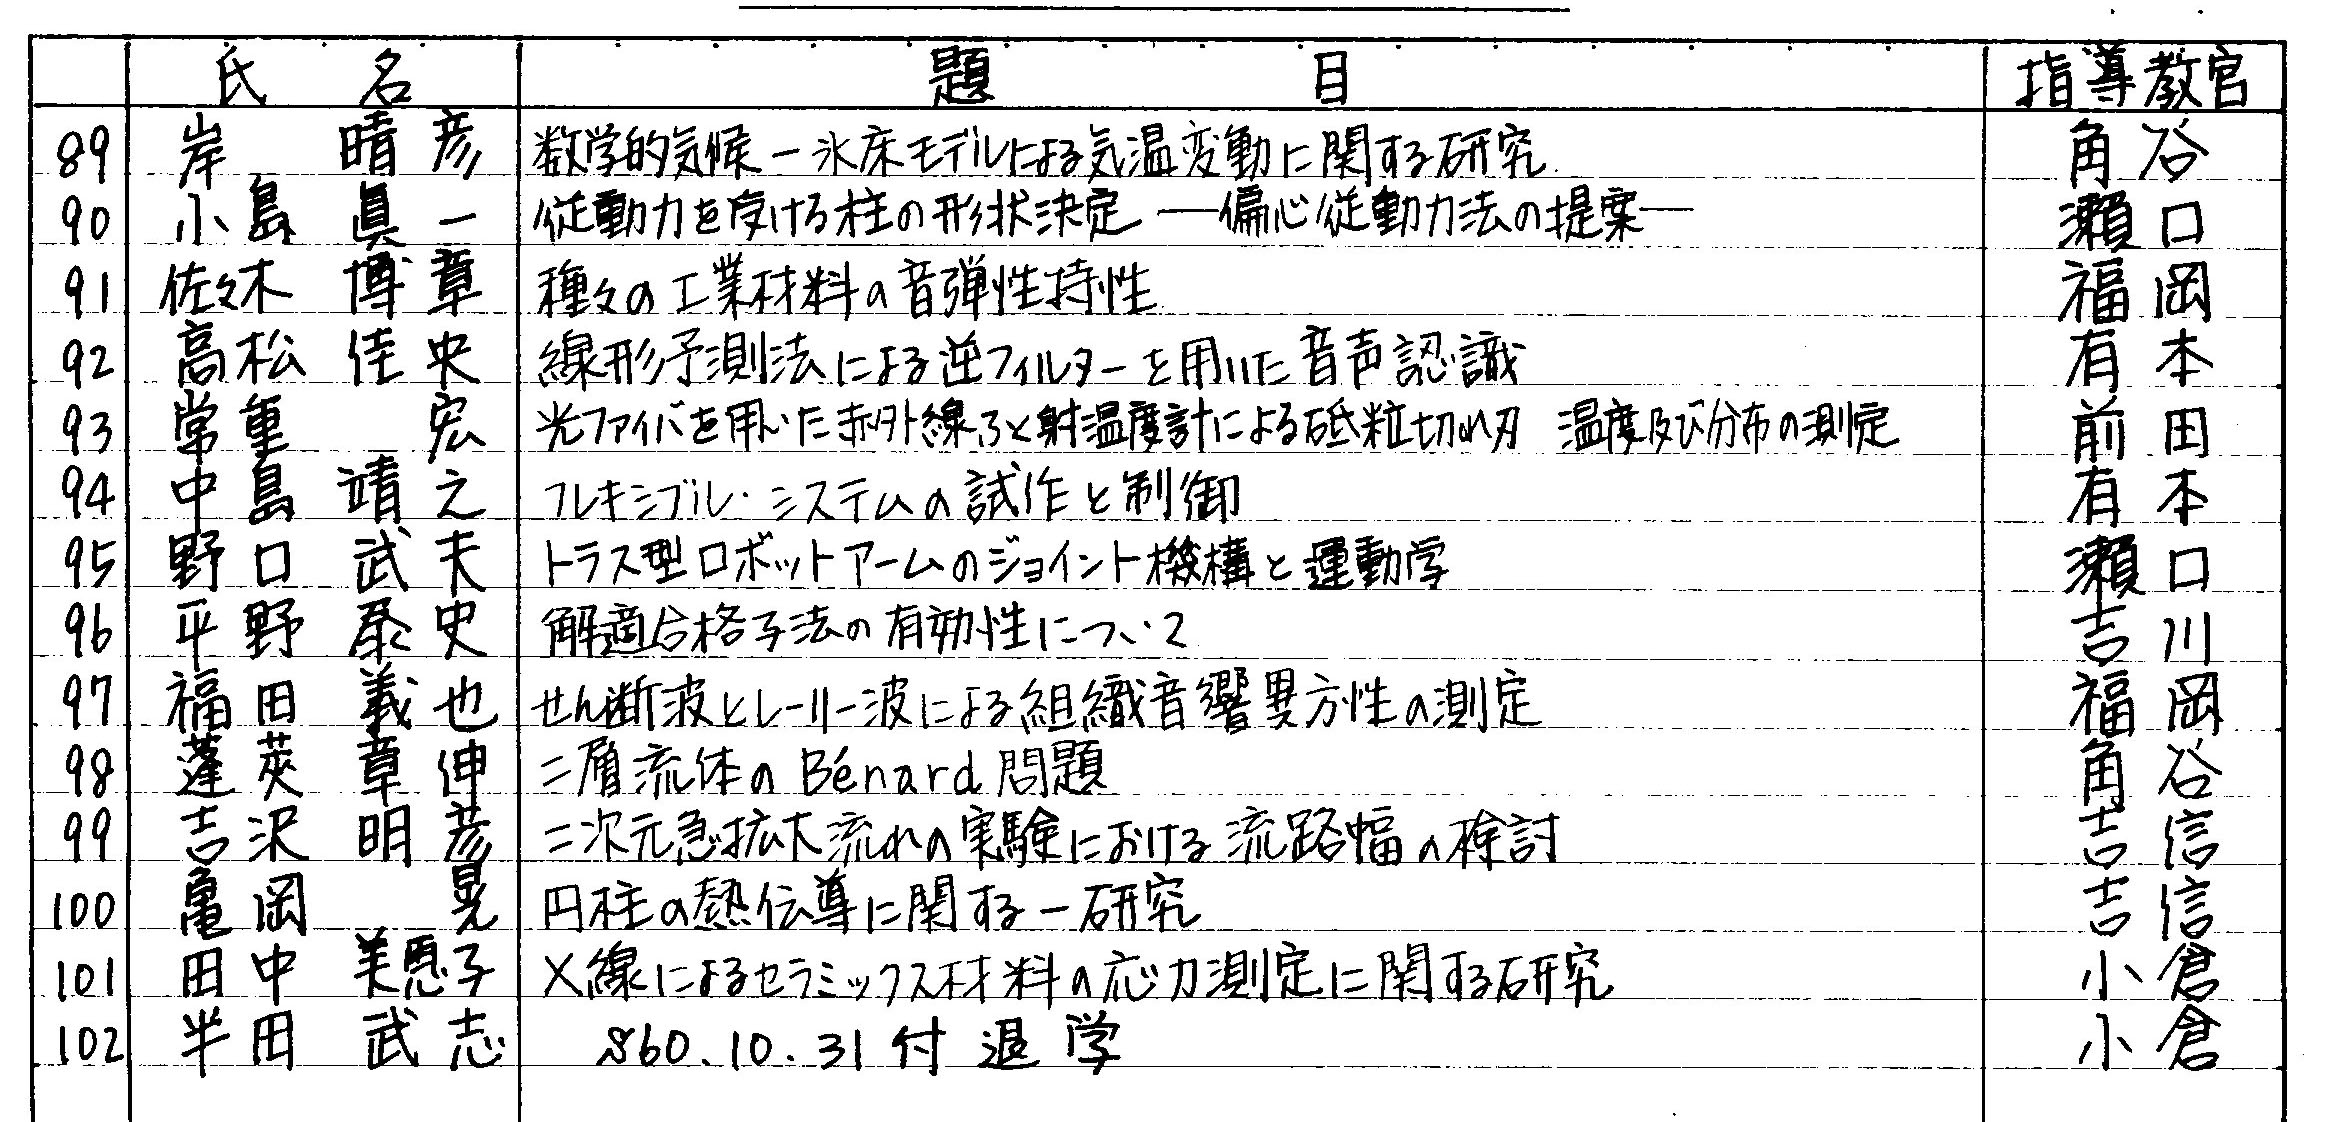 氏 名 題 目 指導教官
89 岸 晴彦 数学的気候－氷床モデルによる気温変動に関する研究 角谷
90 小島 眞一 従動力を受ける柱の形状決定 ―偏心従動力法の提案― 瀬口
91 佐々木 博章 種々の工業材料の音弾性特性 福岡
92 高松 佳央 線形予測法による逆フィルターを用いた音声認識 有本
93 常重 宏 光ファイバを用いた赤外線ふく射温度計による砥粒切れ刃 温度及び分布の測定 前田
94 中島 靖之 フレキシブル・システムの試作と制御 有本
95 野口 武夫 トラス型ロボットアームのジョイント機構と運動学 瀬口
96 平野 泰史 解適合格子法の有効性について 吉川
97 福田 義也 せん断波とレーリー波による組織音響異方性の測定 福岡
98 蓬莢 章伸 二層流体のBénard問題 角谷
99 吉沢 明彦 二次元急拡大流れの実験における流路幅の検討 吉信
100 亀岡 晃 円柱の熱伝導に関する一研究 吉信
101 田中 美恩子 X線によるセラミックス材料の応力測定に関する研究 小倉
102 半田 武志 S60.10.31付 退学 小倉